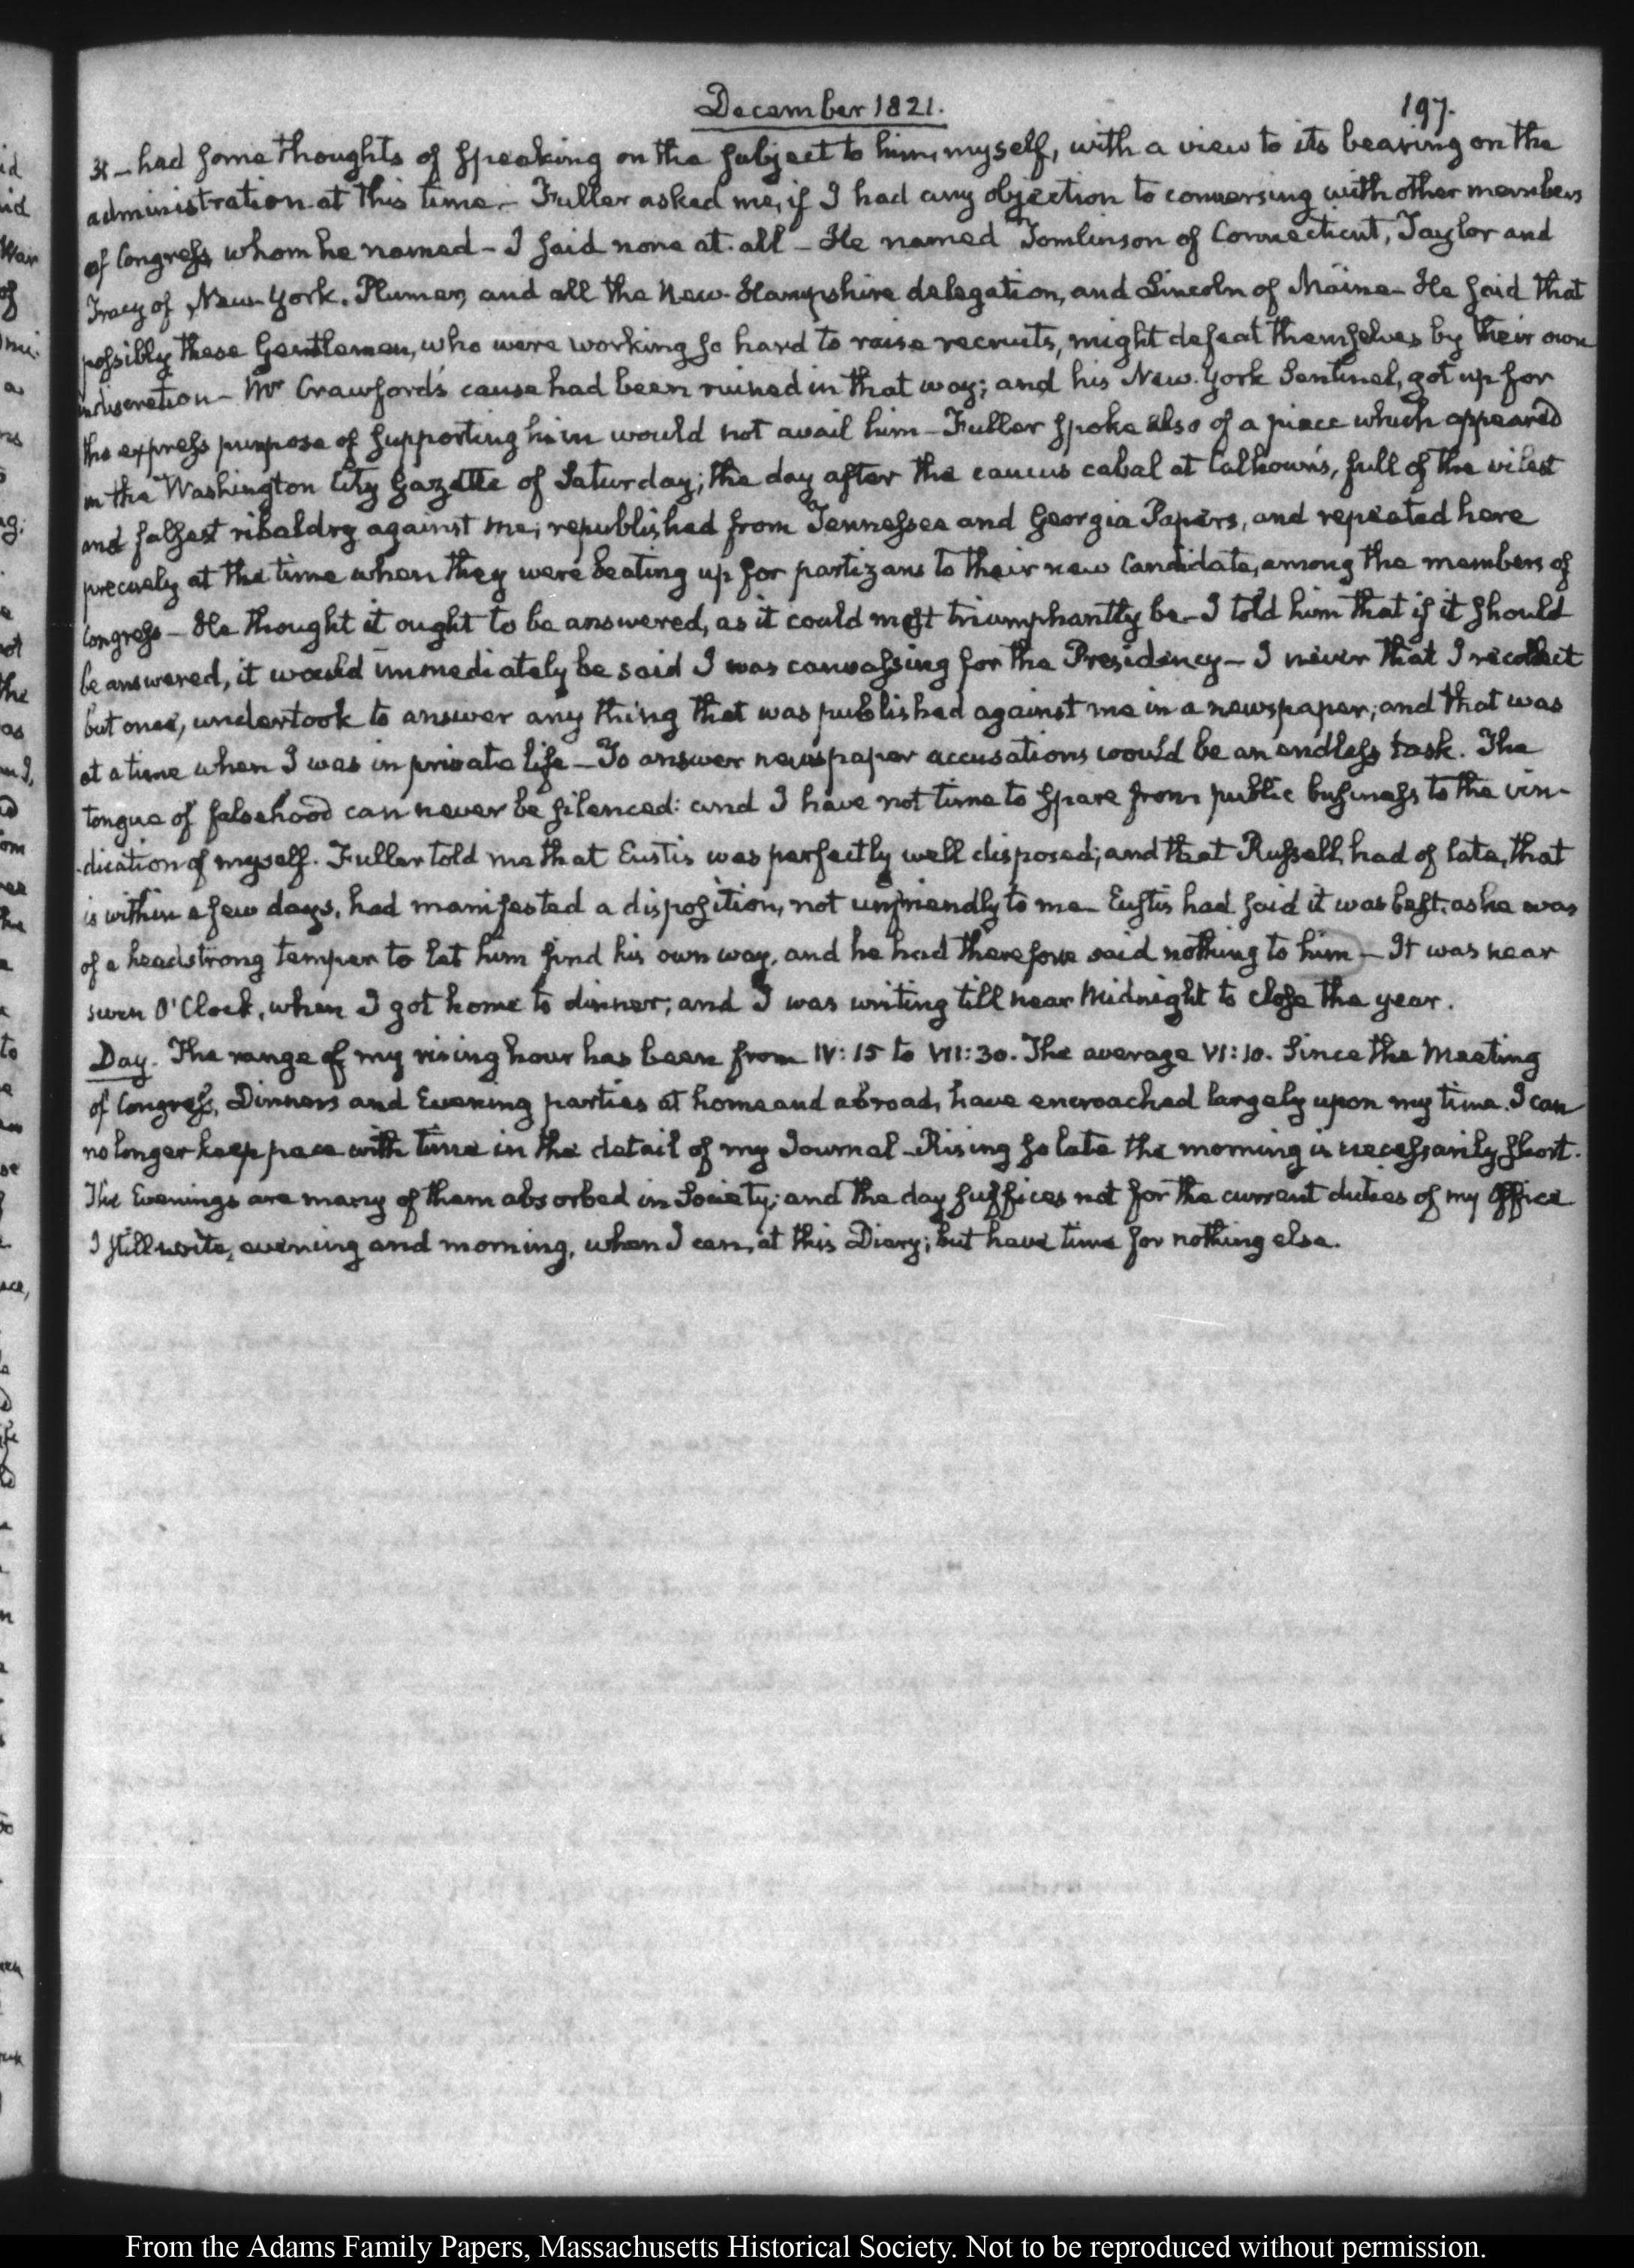 December 1821.
197.
I — had some thoughts of speaking on the subject to him, myself, with a view to its bearing on the
administration at this time — Fuller asked me, if I had any objection to conversing with other members
of Congress whom he named — I said none at all — He named Tomlinson of Connecticut, Taylor and
Tracy of New-York. Plumer, and all the New-Hampshire delegation, and Lincoln of Maine — He said that
possibly these Gentlemen, who were working so hard to raise recruits, might defeat themselves by their own
indiscretion — Mr Crawford's cause had been ruined in that way; and his New-York Sentinel, got up for
the express purpose of supporting him would not avail him — Fuller spoke also of a piece which appeared
in the Washington City Gazette of Saturday; the day after the caucus cabal at Calhoun's, full of the vilest
and falsest ribaldry against me; republished from Tennessee and Georgia Papers, and repeated here
precisely at the time when they were beating up for partizans to their new Candidate, among the members of
Congress — He thought it ought to be answered, as it could most triumphantly be — I told him that if it should
be answered, it would immediately be said I was canvassing for the Presidency — I never that I recollect
but once, undertook to answer any thing that was published against me in a newspaper; and that was
at a time when I was in private life — To answer newspaper accusations would be an endless task. The
tongue of falsehood can never be silenced: and I have not time to spare from public business to the vin-
-dication of myself. Fuller told me that Eustis was perfectly well disposed; and that Russell, had of late, that
is within a few days, had manifested a disposition, not unfriendly to me — Eustis had said it was best, as he was
of a headstrong temper to let him find his own way, and he had therefore said nothing to him — It was near
seven O'Clock, when I got home to dinner; and I was writing till near Midnight to close the year.
Day. The range of my rising hour has been from IV:15 to VII:30. The average VI:10. Since the Meeting
of Congress, Dinners and Evening parties at home and abroad, have encroached largely upon my time. I can
no longer keep pace with time in the detail of my Journal — Rising so late the morning is necessarily short.
The Evenings are many of them absorbed in Society; and the day suffices not for the current duties of my Office
I still write, evening and morning, when I can, at this Diary; but have time for nothing else.
From the Adams Family Papers, Massachusetts Historical Society. Not to be reproduced without permission.